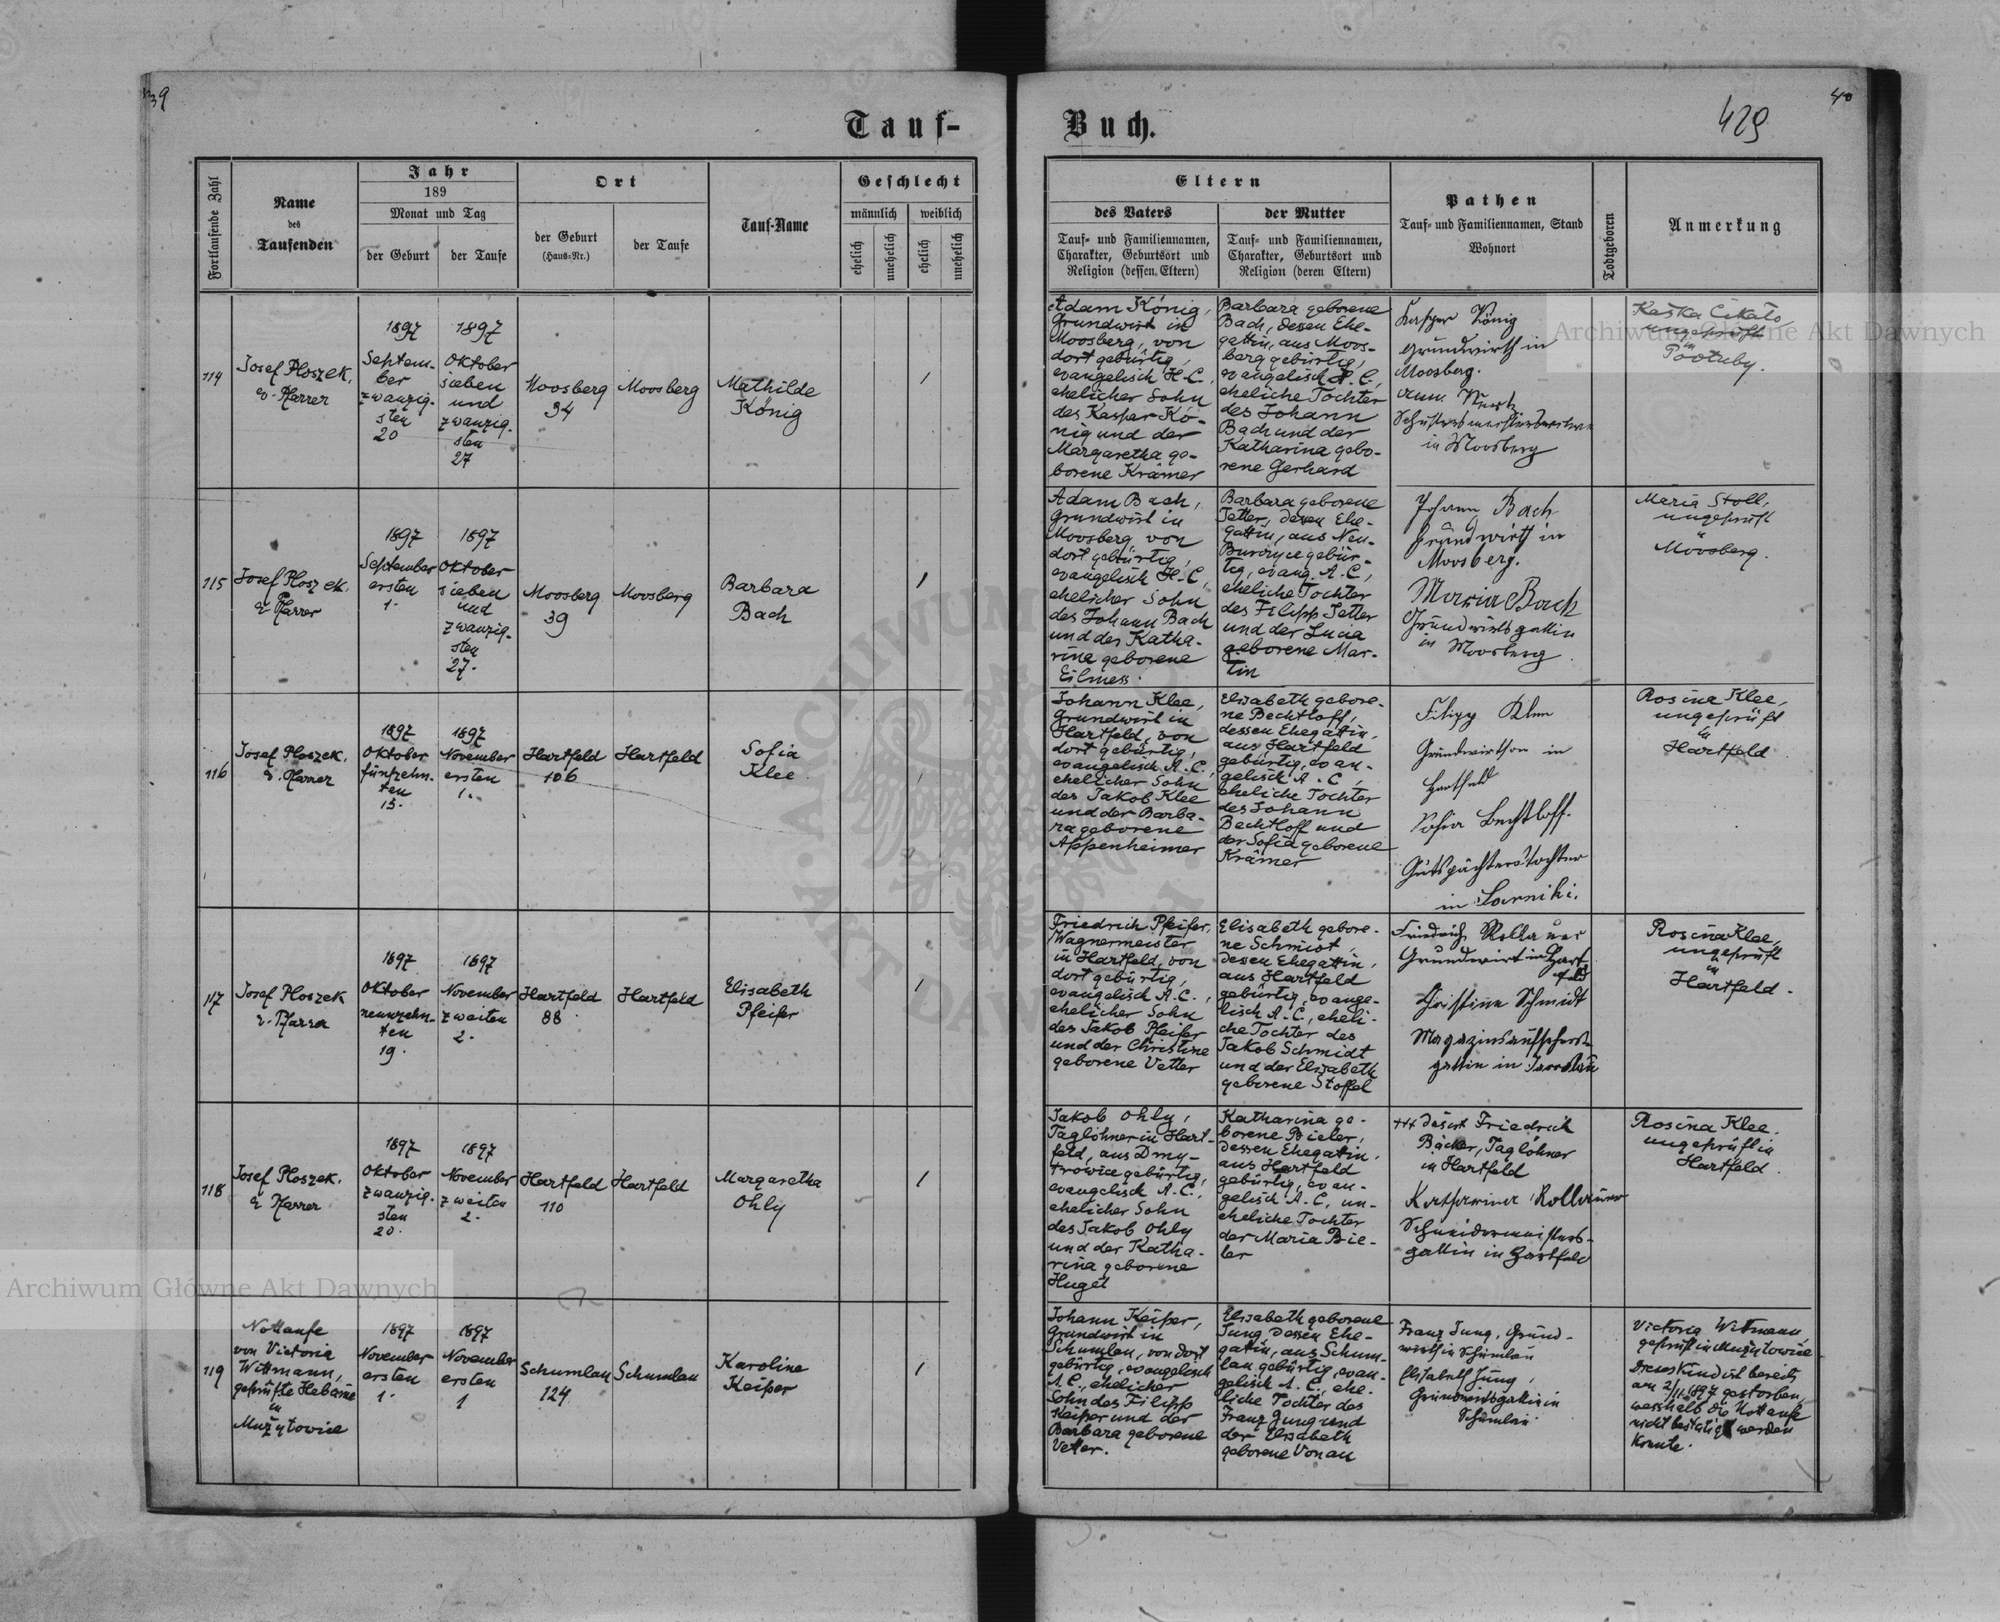 39
40
429
Tauf-
Buch.
Fortlaufende Zahl
Name
des
Taufenden
Jahr
189
Monat und Tag
der Geburt
der Taufe
Ort
der Geburt
(Haus-Nr.)
der Taufe
Tauf-Name
Geschlecht
männlich
weiblich
ehelich
unehelich
ehelich
unehelich
Eltern
des Vaters
Tauf- und Familiennamen,
Charakter, Geburtsort und
Religion (dessen Eltern)
der Mutter
Tauf- und Familiennamen,
Charakter, Geburtsort und
Religion (deren Eltern)
Pathen
Tauf- und Familiennamen, Stand
Wohnort
Todtgeboren
Anmerkung
114
Josef Ploszek,
Pfarrer
1897
Septem-
ber
zwanzig-
sten
20
1897
Oktober
sieben
und
zwanzig-
sten
27
Moosberg
34
Moosberg
Mathilde
König
1
Adam König,
Grundwirt in
Moosberg, von
dort gebürtig,
evangelisch H.C.,
ehelicher Sohn
des Kaspar Kö-
nig und der
Margaretha ge-
borene Krämer
Barbara geborene
Bach, dessen Ehe-
gattin, aus Moos-
berg gebürtig,
evangelisch H.C.,
eheliche Tochter
des Johann
Bach und der
Katharina gebo-
rene Gerhard
Kasper König
Grundwirth in
Moosberg.
in Moosberg
ungeprüft
in
115
Josef Ploszek,
Pfarrer
1897
September
ersten
1.
1897
Oktober
sieben
und
zwanzig-
sten
27.
Moosberg
39
Moosberg
Barbara
Bach
1
Adam Bach,
Grundwirt in
Moosberg von
dort gebürtig,
evangelisch H.C,
ehelicher Sohn
des Johann Bach
und der Katha-
rina geborene
Eilmess.
Barbara geborene
Jetter, dessen Ehe-
gattin, aus Neu-
Burczyce gebür-
tig, evang. A.C,
eheliche Tochter
des Filipp Jetter
und der Lucia
geborene Mar-
tin
Johann Bach
Grundwirth in
Moosberg.
Maria Bach
Grundwirts gattin
in Moosberg
Maria Stoll,
ungeprüft
in
Moosberg.
116
Josef Ploszek,
Pfarrer
1897
Oktober
fünfzehn-
ten
15.
1897
November
ersten
1.
Hartfeld
106
Hartfeld
Sofia
Klee
Johann Klee,
Grundwirt in
Hartfeld, von
dort gebürtig,
evangelisch A.C.,
ehelicher Sohn
des Jakob Klee
und der Barba-
ra geborene
Appenheimer
Elisabeth gebore-
ne Bechtloff,
dessen Ehegattin,
aus Hartfeld
gebürtig, evan-
gelisch A.C,
eheliche Tochter
des Johann
Bechtloff und
der Sofia geborene
Krämer
Filipp Klee
Grundwirtson in
Hartfeld
Sofia Bechtloff.
Gutspächterstochter
in
Rosina Klee,
ungeprüft
in
Hartfeld
117
Josef Ploszek
Pfarrer
1897
Oktober
neunzehn-
ten
19.
1897
November
zweiten
2.
Hartfeld
88
Hartfeld
Elisabeth
Pfeifer
1
Friedrich Pfeifer,
Wagnermeister
in Hartfeld, von
dort gebürtig,
evangelisch A.C.,
ehelicher Sohn
des Jakob Pfeifer
und der Christine
geborene Vetter
Elisabeth gebore-
ne Schmidt,
dessen Ehegattin,
aus Hartfeld
gebürtig, evange-
lisch A.C., eheli-
che Tochter des
Jakob Schmidt
und der Elisabeth
geborene Stoffel
Friedrich Rollauer
Grundwirt in Hart
feld
Christine Schmidt
Magazinsaufsehers
gattin in Jaroslau
Rosina Klee,
ungeprüft
in
Hartfeld.
118
Josef Ploszek,
Pfarrer
1897
Oktober
zwanzig-
sten
20.
1897
November
zweiten
2.
Hartfeld
110
Hartfeld
Margaretha
Ohly
1
Jakob Ohly,
Taglöhner in Hart-
feld, aus Dmy-
trowice gebürtig,
evangelisch A.C.,
ehelicher Sohn
des Jakob Ohly
und der Katha-
rina geborene
Huget
Katharina ge-
borene Bieler,
dessen Ehegattin,
aus Hartfeld
gebürtig, evan-
gelisch A.C, un-
eheliche Tochter
der Maria Bie-
ler
+++ Friedrich
Bäcker, Taglöhner
in Hartfeld
Katharina Rollauer
Schneidermeisters-
gattin in Hartfeld
Rosina Klee.
ungeprüft in
Hartfeld.
119
Nottaufe
von Victoria
Wittmann,
geprüfte Hebame
in
Mużyłowice
1897
November
ersten
1.
1897
November
ersten
1
Schumlau
124
Schumlau
Karoline
Keiper
1
Johann Keiper,
Grundwirt in
Schumlau, von dort
gebürtig, evangelisch
A.C., ehelicher
Sohn des Filipp
Keiper und der
Barbara geborene
Vetter.
Elisabeth geborene
Jung dessen Ehe-
gattin, aus Schum-
lau gebürtig, evan-
gelisch A.C., ehe-
liche Tochter des
Franz Jung und
der Elisabeth
geborene Vonau
Franz Jung, Grund-
wirth in Schumlau
Elisabeth Jung,
Grundwirtsgattin in
Schumlau
Victoria Wittmann,
geprüft in Mużyłowice
Dieses Kind ist bereits
am 2/11 1897 gestorben,
weshalb die Nottaufe
nicht bestätigt werden
konnte.
Archiwum Główne Akt Dawnych
Archiwum Główne Akt Dawnych